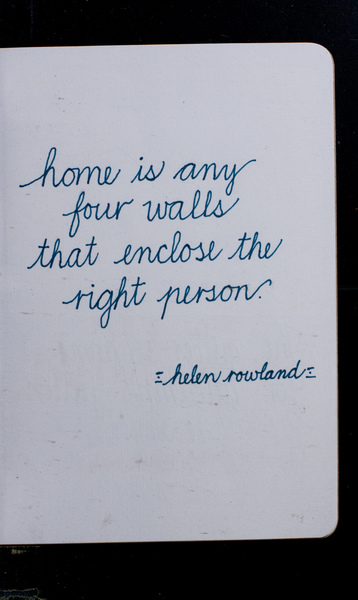 home is any
four walls
that enclose the
right person.
=helen rowland=